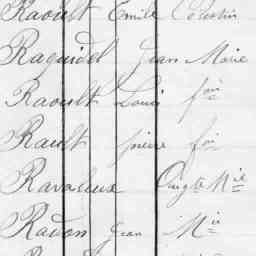 Raoult Emile Celestin
Raguidel Jean Marie
Raoult Louis fois
Rault pierre fois
Ravaleux Augte Mie
Radon Jean Mie